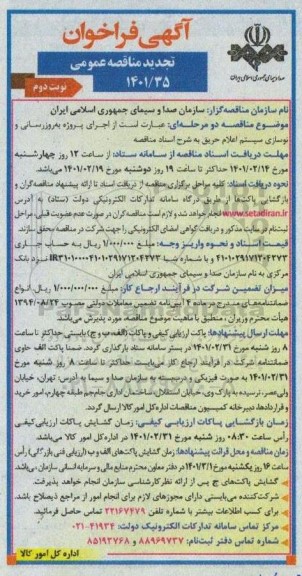 آگهی فراخوان
صدا و سیمای جمهوری اسلامی ایران
تجدید مناقصه عمومی
۱۴۰۱/۳۵
نوبت دوم
نام سازمان مناقصه‌گزار: سازمان صدا و سیمای جمهوری اسلامی ایران
موضوع مناقصه دو مرحله‌ای: عبارت است از اجرای پروژه به‌روزرسانی و
نوسازی سیستم اعلام حریق به شرح اسناد مناقصه
مهلت دریافت اسناد مناقصه از سامانه ستاد: از ساعت ۱۳ روز چهارشنبه
مورخ ۱۴۰۱/۰۲/۱۴ حداکثر تا ساعت ۱۹ روز دوشنبه مورخ ۱۴۰۱/۰۲/۱۹ می‌باشد.
نحوه دریافت اسناد: کلیه مراحل برگزاری مناقصه از دریافت اسناد تا ارائه پیشنهاد مناقصه‌گران و
بازگشایی پاکت‌ها از طریق درگاه سامانه تدارکات الکترونیکی دولت (ستاد) به آدرس
www.setadiran.ir انجام خواهد شد و لازم است مناقصه‌گران در صورت عدم عضویت قبلی، مراحل
ثبت‌نام در سایت مذکور و دریافت گواهی امضای الکترونیکی را جهت شرکت در مناقصه محقق سازند.
قیمت اسناد و نحوه واریز وجه: مبلغ ۱/۰۰۰/۰۰۰ ریال به حساب جاری
مرکزی به نام سازمان صدا و سیمای جمهوری اسلامی ایران
میزان تضمین شرکت در فرآیند ارجاع کار: مبلغ ۱/۰۰۰/۰۰۰/۰۰۰ ریال انواع
ضمانتنامه‌های مندرج در ماده ۴ آیین‌نامه تضمین معاملات دولتی مصوب ۱۳۹۴/۰۸/۲۴
هیأت محترم وزیران، منطبق با ماهیت موضوع مناقصه، مورد پذیرش می‌باشد.
مهلت ارسال پیشنهادها: پاکت ارزیابی کیفی و پاکات (الف، ب و ج) بایستی حداکثر تا ساعت
۸ روز شنبه مورخ ۱۴۰۱/۰۲/۳۱ در بستر سامانه ستاد بارگذاری گردد. ضمنا پاکت الف حاوی
ضمانتنامه شرکت در فرآیند ارجاع کار می‌بایست حداکثر تا ساعت ۸ روز شنبه مورخ
۱۴۰۱/۰۲/۳۱ به صورت فیزیکی و در سازمان صدا و سیما به آدرس: تهران، خیابان
ولی‌عصر، نرسیده به پارک‌وی، خیابان استقلال، ساختمان اداری جام‌جم، طبقه چهارم، امور خرید
و قراردادها، دبیرخانه کمیسیون مناقصات اداره کل امور کالا ارسال گردد.
زمان بازگشایی پاکات ارزیابی کیفی: زمان گشایش پاکات ارزیابی کیفی
رأس ساعت ۰۸:۳۰ روز شنبه مورخ ۱۴۰۱/۰۲/۳۱ در اداره کل امور کالا می‌باشد.
زمان مناقصه و محل قرائت پیشنهادها: زمان گشایش پاکت‌های الف و ب (ارزیابی فنی بازرگانی) رأس
ساعت ۱۶ روز یکشنبه مورخ ۱۴۰۱/۳/۱ در دفتر معاون محترم منابع مالی و سرمایه انسانی سازمان می‌باشد.
گشایش پاکت‌های ج پس از ارائه نظر کارشناسی سازمان انجام خواهد پذیرفت.
شرکت‌کننده می‌بایستی دارای مجوزهای لازم برای انجام امور از مراجع ذیصلاح باشد.
برای کسب اطلاعات بیشتر با شماره تلفن ۲۲۱۶۷۴۷۹ تماس حاصل فرمائید.
مرکز تماس سامانه تدارکات الکترونیک دولت: ۴۱۹۳۴-۰۲۱
شماره تماس دفتر ثبت‌نام: ۸۸۹۶۹۷۳۷ و ۸۵۱۹۳۷۶۸
اداره کل امور کالا